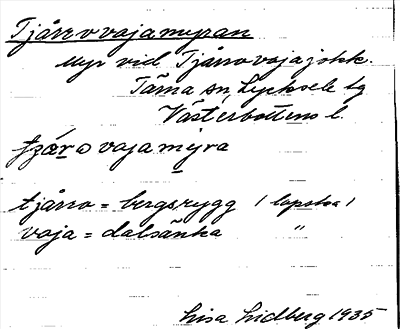 Tjårrovajamyran
Myr vid Tjårrovajajokk.
Tärna sn, Lycksele lg
Västerbottens l.
vajamýra
tjårro = bergsrygg (lapska)
vaja = dalsänka "
Lisa Lidberg 1935